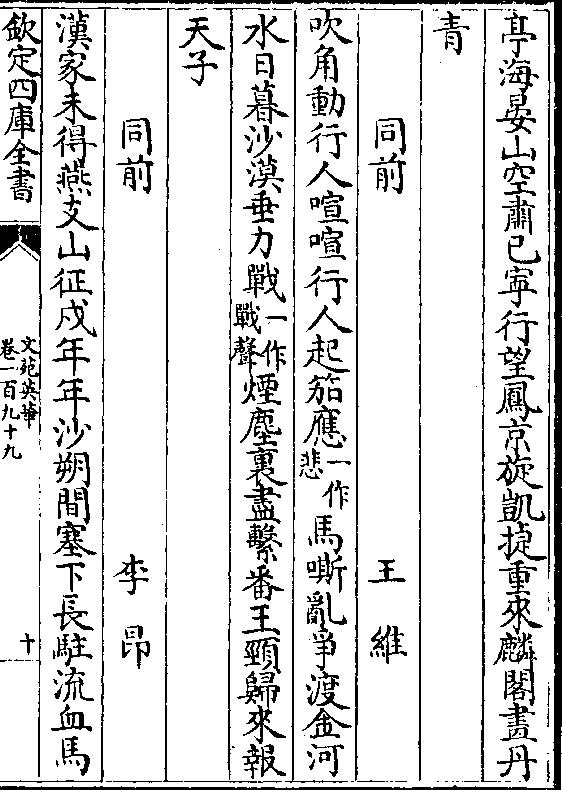 亭海晏山空肅已寧行望鳳京旋凱捷重來麟閣畫丹
青
同前　王維
吹角動行人喧喧行人起笳應一作悲馬嘶亂爭渡金河
水日暮沙漠垂力戰一作戰聲煙塵裏盡繫番王頸歸來報
天子
同前　李昂
漢家未得燕支山征戍年年沙朔間塞下長駐流血馬
欽定四庫全書
文苑英華
卷一百九十九
十